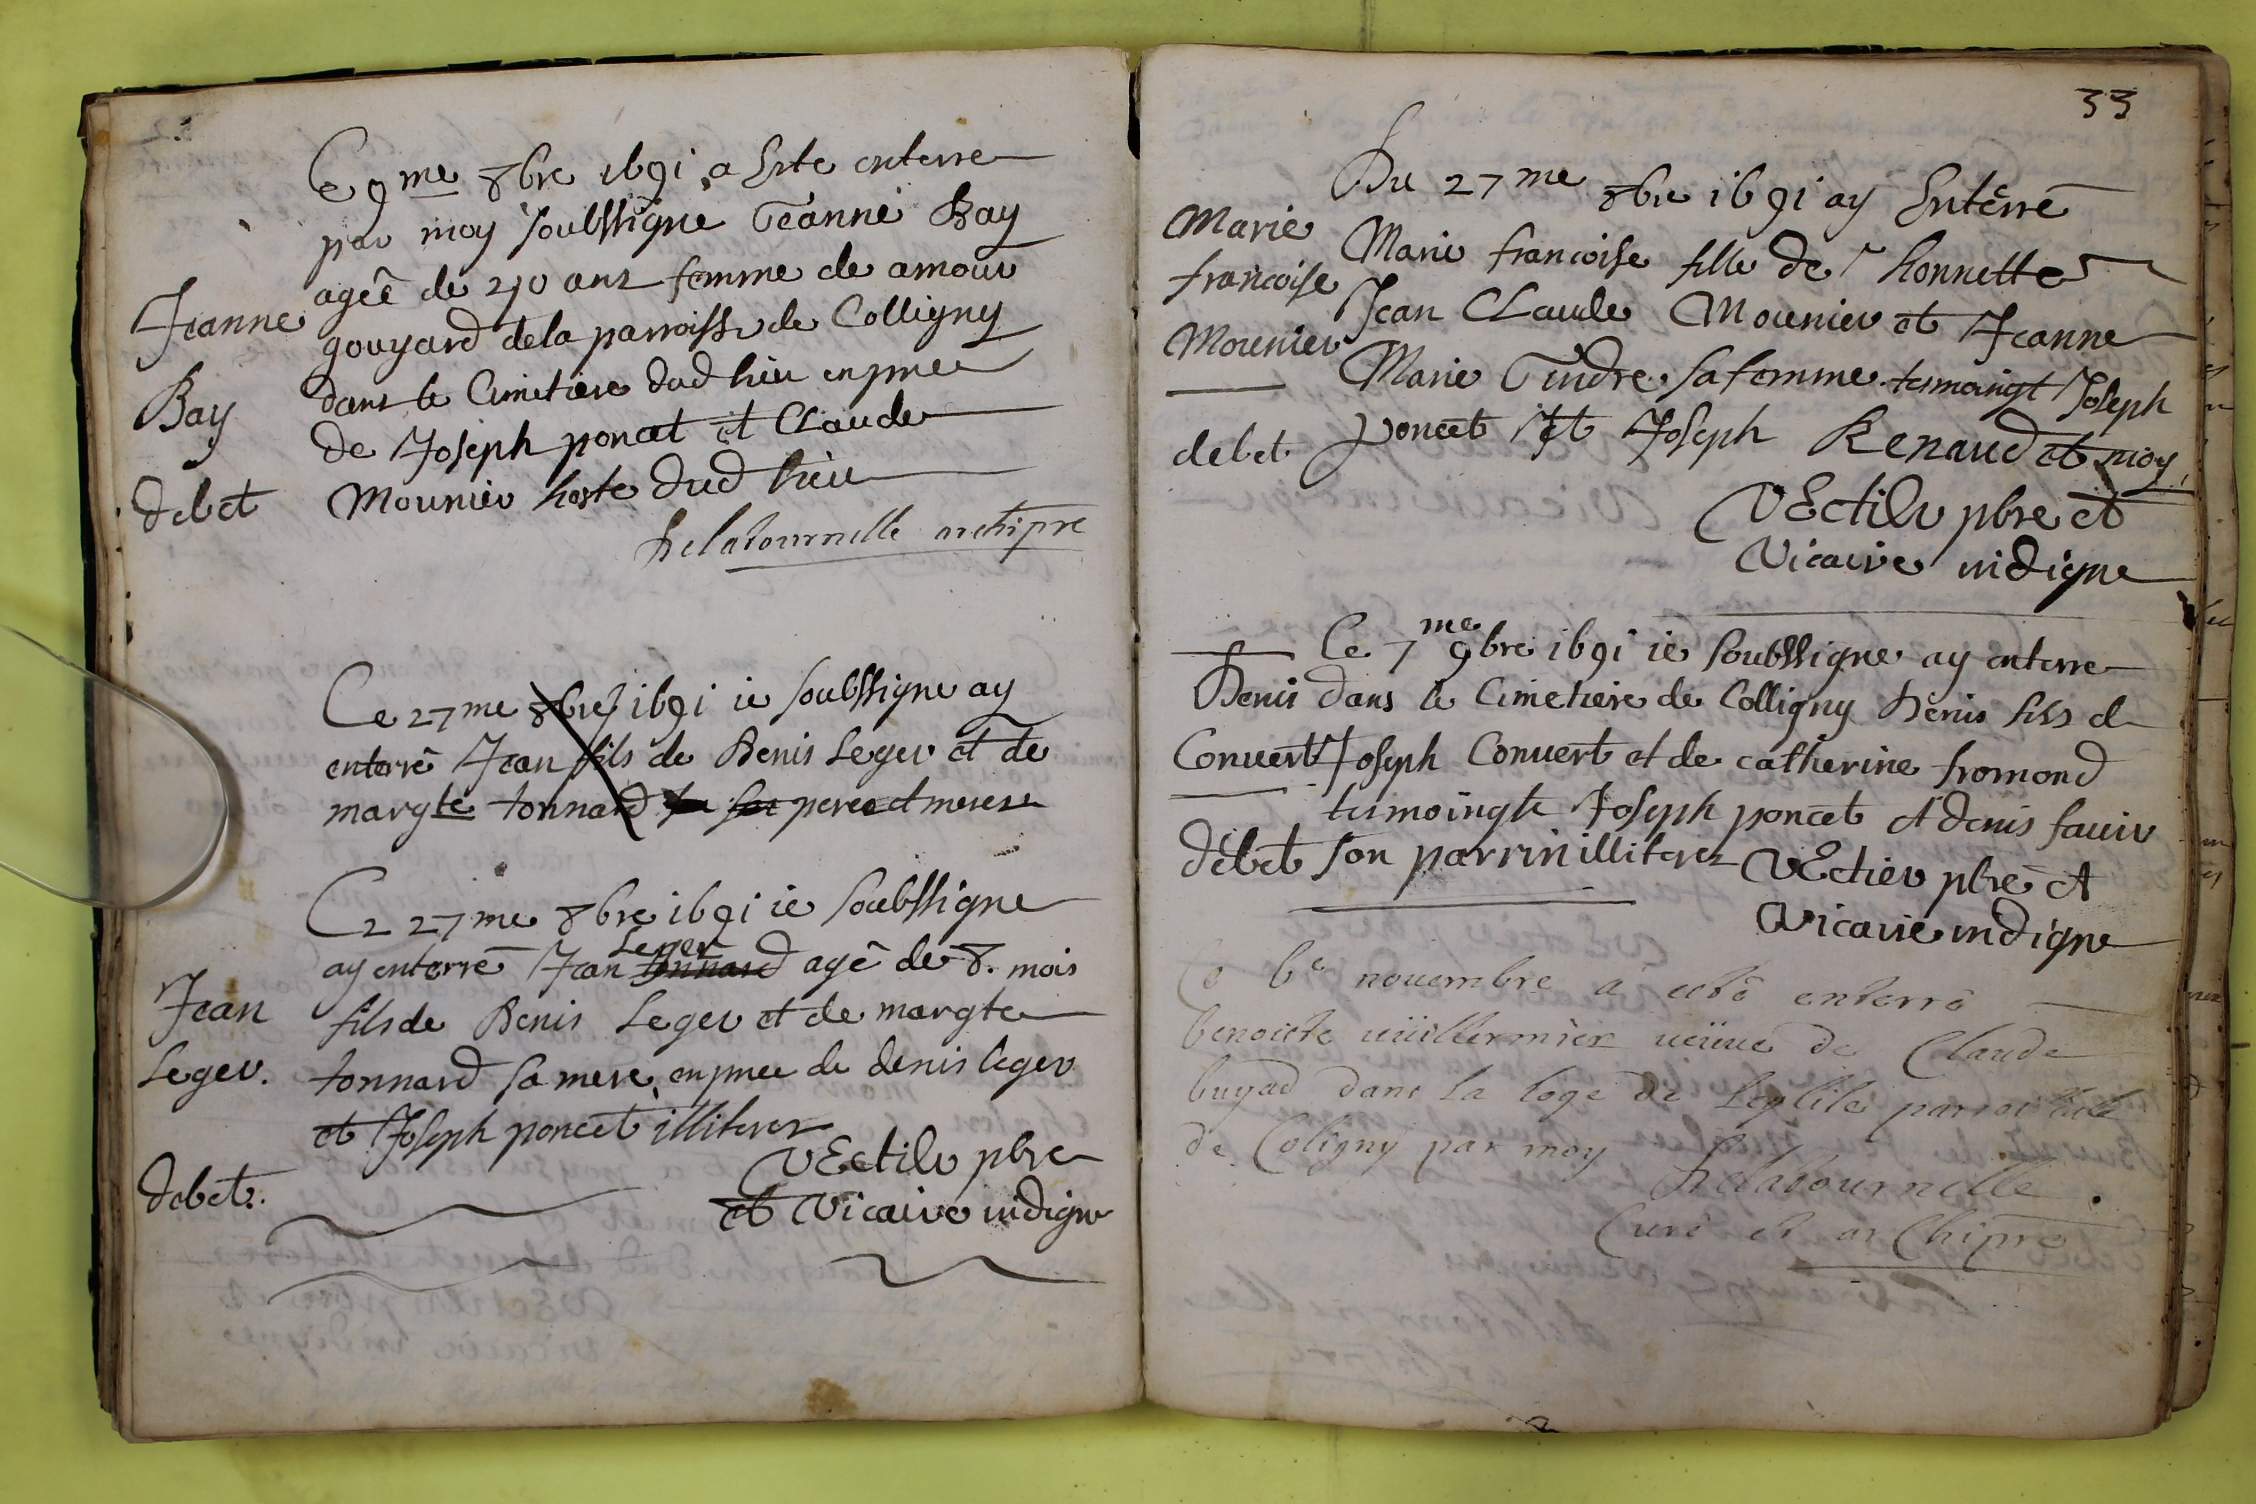 Ce 9me 8bre 1691 a Este enterre
par moy soubssigne Jeanne Bay
agée de 40 ans femme de amour
gouyard dela parroisse de Colligny
dans le Cimetiere dud lieu en pnce
de Joseph poncet et Claude
Mounier hoste dud lieu
Delatournelle archipre
Jeanne
Bay
debet
Ce 27me 8bre 1691 ie soubssigne ay
enterré Jean fils de Denis Leger et de
margte tonnard pere et mere
Ce 27me 8bre 1691 ie soubssigne
ay enterré Jean Leger tonnard agé de 8. mois
fils de Denis Leger et de margte
tonnard sa mere en pnce de denis leger
et Joseph poncet illiteres
VEctier pbre
et Vicaire indigne
Jean
Leger.
debet.
33
Du 27me 8bre 1691 ay Enterré
Marie francoise fille de honnette
Jean CLaude Mounier et Jeanne
Marie sa femme tesmoingt Joseph
poncet et Joseph Renaud et moy
VEctier pbre et
Vicaire indigne
Marie
francoise
Mounier
debet
Ce 7me 9bre 1691 ie soubssigne ay enterre
dans le Cimetiere de Colligny Denis fils de
Joseph Convert et de catherine fromond
tesmoingts Joseph poncet et denis favier
son parrin illiteres VEctier pbre et
Vicaire indigne
Denis
Convert
debet
Ce 6e novembre a esté enterré
benoicte vüillermier veüve de Claude
buyad dans la loge de Leglise parroissiale
de Coligny par moy Delatournelle
Curé et archipre